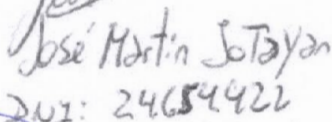 José Martin Sotayan
D.N.I: 24.654.922